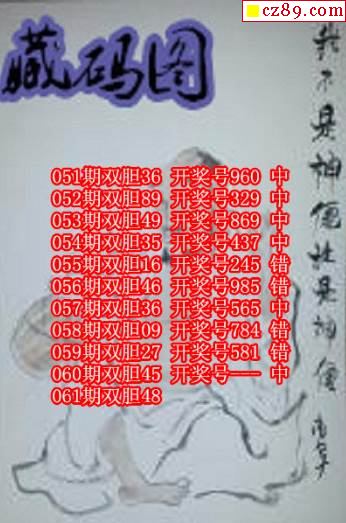 cz89.com
藏码图
051期双胆36 开奖号960 中
052期双胆89 开奖号329 中
053期双胆49 开奖号869 中
054期双胆35 开奖号437 中
055期双胆16 开奖号245 错
056期双胆46 开奖号985 错
057期双胆36 开奖号565 中
058期双胆09 开奖号784 错
059期双胆27 开奖号581 错
060期双胆45 开奖号--- 中
061期双胆48
我不是神便让是神仙